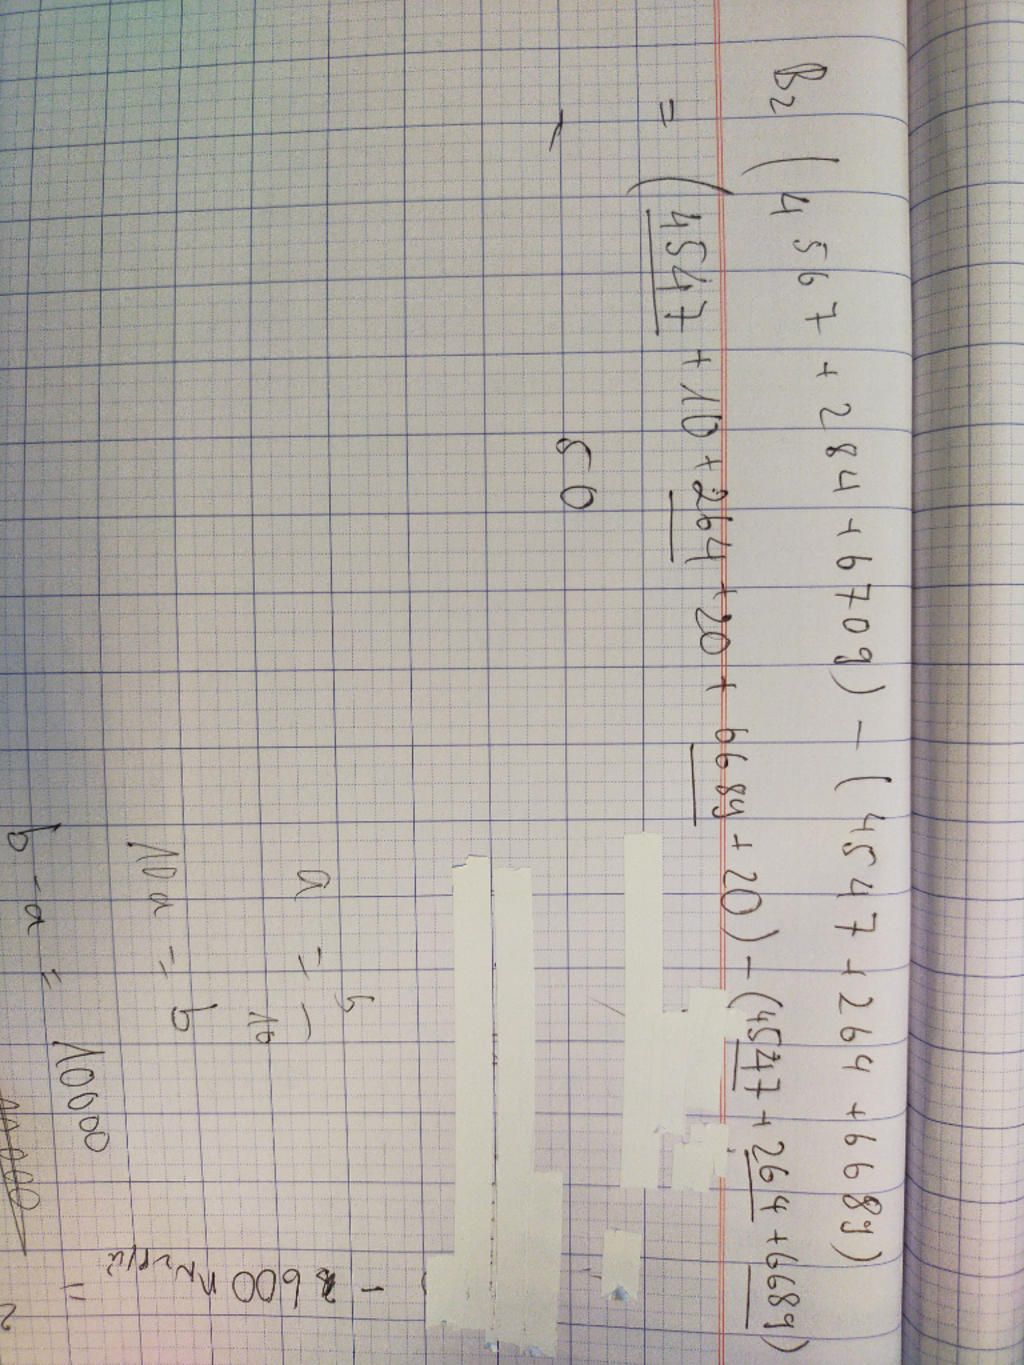 B2 (4567 + 284 + 6709) - (4547 + 264 + 6689)
= (4547 + 10 + 264 + 20 + 6689 + 20) - (4547 + 264 + 6689)
50
a = b
10
10a = b
b - a = 10000